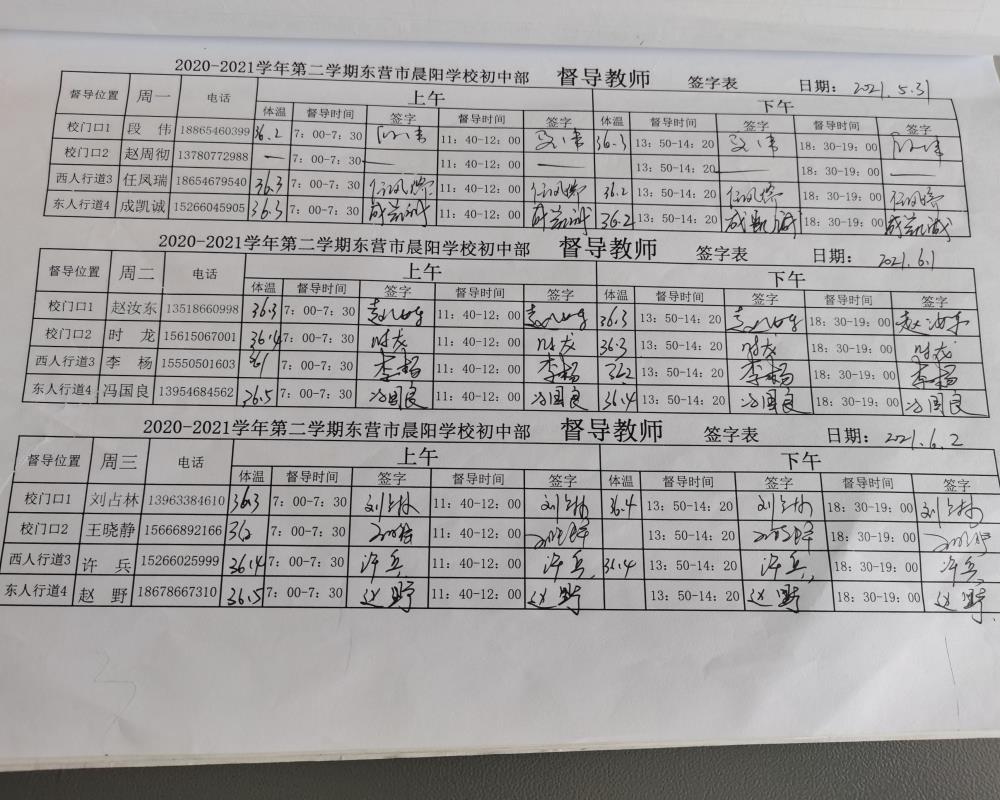 2020-2021学年第二学期东营市晨阳学校初中部 督导教师 签字表 日期: 2021.5.31
督导位置 周一 电话 上午 下午
体温 督导时间 签字 督导时间 签字 体温 督导时间 签字 督导时间 签字
校门口1 段 伟 18865460399 36.2 7:00-7:30 段伟 11:40-12:00 段伟 36.3 13:50-14:20 段伟 18:30-19:00 段伟
校门口2 赵周彻 13780772988 — 7:00-7:30 — 11:40-12:00 — 13:50-14:20 — 18:30-19:00 —
西人行道3 任凤瑞 18654679540 36.3 7:00-7:30 任凤瑞 11:40-12:00 任凤瑞 36.2 13:50-14:20 任凤瑞 18:30-19:00 任凤瑞
东人行道4 成凯诚 15266045905 36.3 7:00-7:30 成凯诚 11:40-12:00 成凯诚 36.2 13:50-14:20 成凯诚 18:30-19:00 成凯诚
2020-2021学年第二学期东营市晨阳学校初中部 督导教师 签字表 日期: 2021.6.1
督导位置 周二 电话 上午 下午
体温 督导时间 签字 督导时间 签字 体温 督导时间 签字 督导时间 签字
校门口1 赵汝东 13518660998 36.3 7:00-7:30 赵汝东 11:40-12:00 赵汝东 36.3 13:50-14:20 赵汝东 18:30-19:00 赵汝东
校门口2 时 龙 15615067001 36.4 7:00-7:30 时龙 11:40-12:00 时龙 36.3 13:50-14:20 时龙 18:30-19:00 时龙
西人行道3 李 杨 15550501603 7:00-7:30 李杨 11:40-12:00 李杨 36.2 13:50-14:20 李杨 18:30-19:00 李杨
东人行道4 冯国良 13954684562 36.5 7:00-7:30 冯国良 11:40-12:00 冯国良 36.4 13:50-14:20 冯国良 18:30-19:00 冯国良
2020-2021学年第二学期东营市晨阳学校初中部 督导教师 签字表 日期: 2021.6.2
督导位置 周三 电话 上午 下午
体温 督导时间 签字 督导时间 签字 体温 督导时间 签字 督导时间 签字
校门口1 刘占林 13963384610 36.3 7:00-7:30 刘占林 11:40-12:00 刘占林 36.4 13:50-14:20 刘占林 18:30-19:00 刘占林
校门口2 王晓静 15666892166 7:00-7:30 王晓静 11:40-12:00 王晓静 13:50-14:20 王晓静 18:30-19:00 王晓静
西人行道3 许 兵 15266025999 36.4 7:00-7:30 许兵 11:40-12:00 许兵 36.4 13:50-14:20 许兵 18:30-19:00 许兵
东人行道4 赵 野 18678667310 36.5 7:00-7:30 赵野 11:40-12:00 赵野 13:50-14:20 赵野 18:30-19:00 赵野